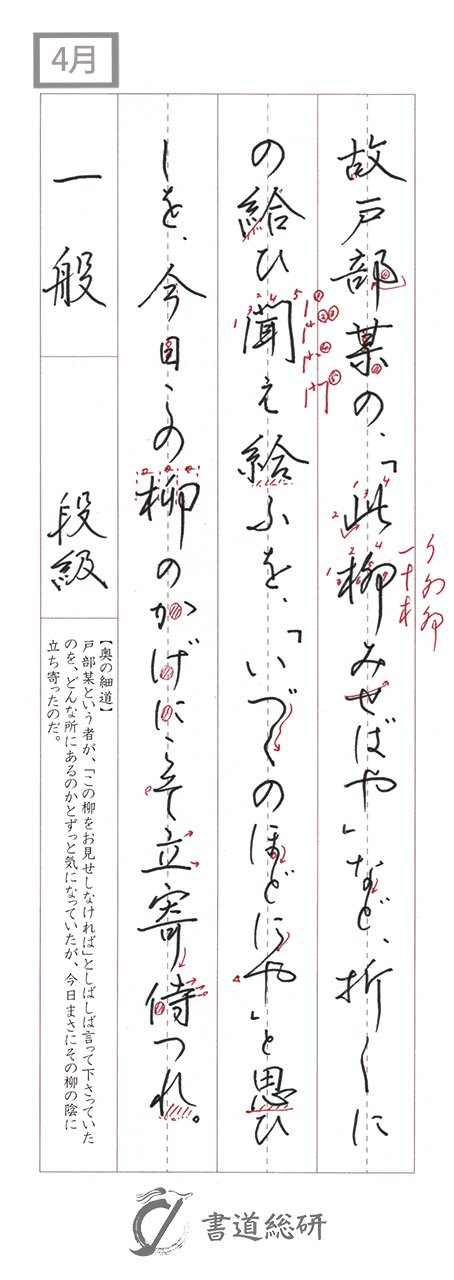 4月
故戸部某の、「此柳みせばや」など、折〱に
の給ひ聞え給ふを、「いづくのほどにや」と思ひ
しを、今日この柳のかげにこそ立寄侍つれ。
一般
段級
【奥の細道】
戸部某という者が、「この柳をお見せしなければ」としばしば言って下さっていた
のを、どんな所にあるのかとずっと気になっていたが、今日まさにその柳の陰に
立ち寄ったのだ。
書道総研